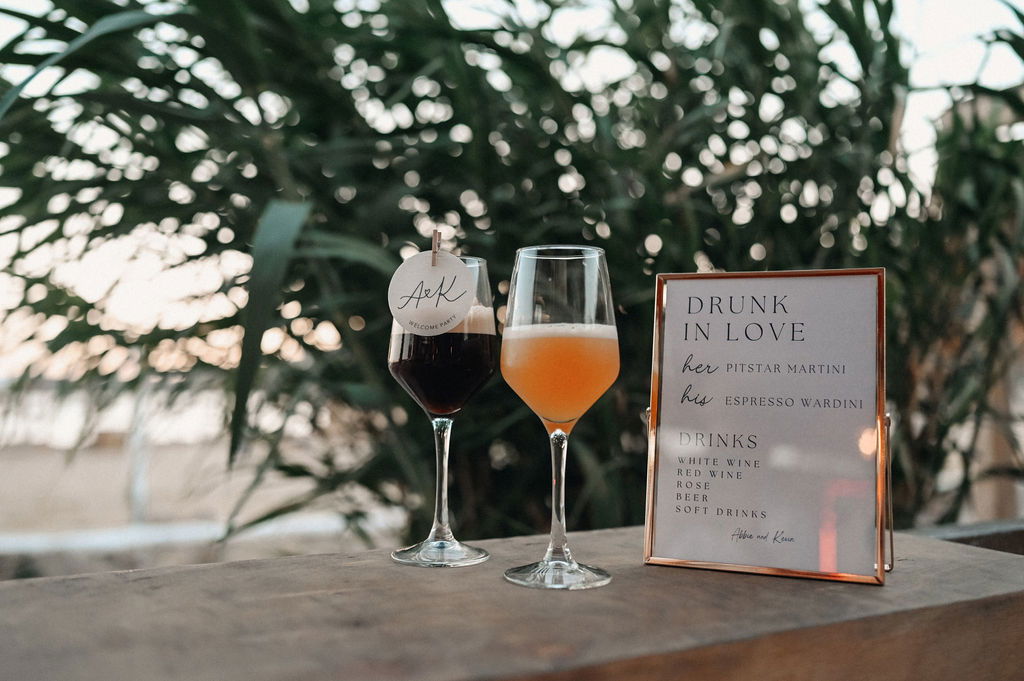 A♥K
WELCOME PARTY
DRUNK
IN LOVE
her PITSTAR MARTINI
his ESPRESSO WARDINI
DRINKS
WHITE WINE
RED WINE
ROSE
BEER
SOFT DRINKS
Abbie and Kevin